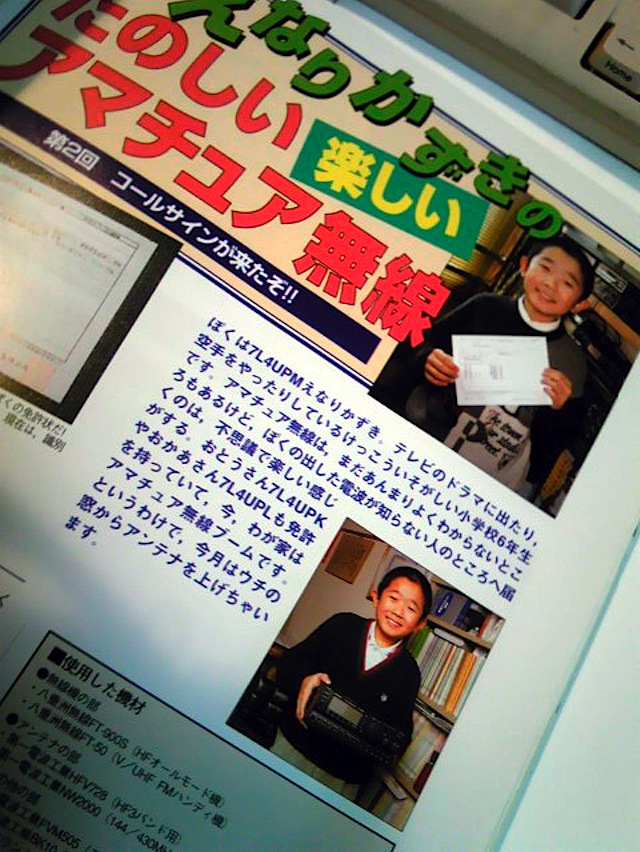 えなりかずきの
たのしい
アマチュア無線
楽しい
第2回 コールサインが来たぞ!!
ぼくは7L4UPMえなりかずき。テレビのドラマに出たり,
空手をやったりしているけっこういそがしい小学校6年生
です。アマチュア無線は,まだあんまりよくわからないとこ
ろもあるけど,ぼくの出した電波が知らない人のところへ届
くのは,不思議で楽しい感じ
がする。おとうさん7L4UPK
やおかあさん7L4UPLも免許
を持っていて,今,わが家は
アマチュア無線ブームです。
というわけで,今月はウチの
窓からアンテナを上げちゃい
ます。
くの免許状だ!
現在は,識別
■使用した機材
●無線機の部
・八重洲無線FT-900S(HFオールモード機)
・八重洲無線FT-50(V/UHF FMハンディ機)
●アンテナの部
・第一電波工業HFV728(HF3バンド用)
電波工業NW2000(144/430MH
の他の部
電波工業PVM505
Home